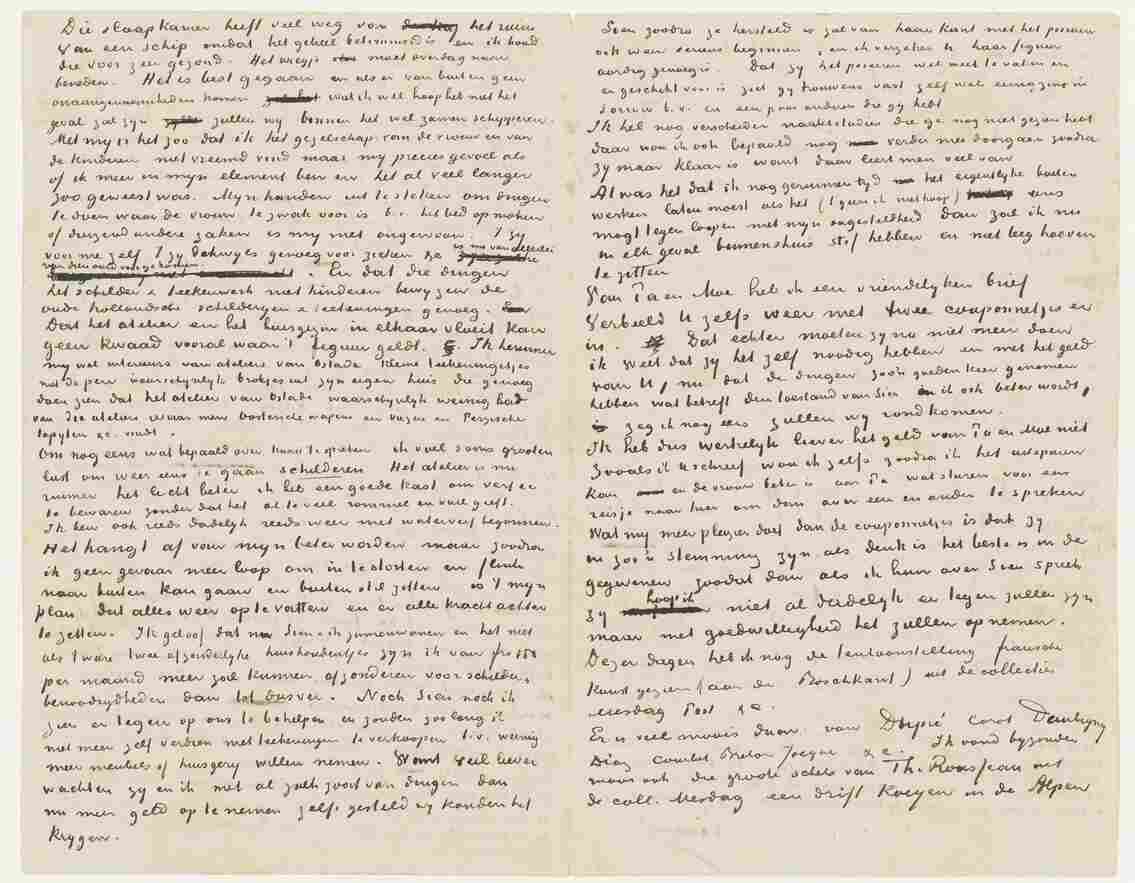 Die slaapkamer heeft veel weg van het ruim
van een schip omdat het geheel betimmerd is en ik houd
die voor zeer gezond. Het wiegje moet overdag naar
beneden. Het is best gegaan en als er van buiten geen
onaangenaamheden komen wat ik wel hoop het niet het
geval zal zijn zullen wy binnen het wel zamen schipperen.
Met my is het zoo dat ik het gezelschap van de vrouw en van
de kinderen niet vreemd vind maar my precies gevoel als
of ik meer in myn element ben en het al veel langer
zoo geweest was. Myn handen uit te steken om dingen
te doen waar de vrouw te zwak voor is b.v. het bed opmaken
of duizend andere zaken is my niet ongewoon. 't zy
voor me zelf 't zy dikwyls genoeg voor zieken &c
is my van allerlei
van dien aard voorgekomen. En dat die dingen
het schilder & teekenwerk niet hinderen bewyzen de
oude hollandsche schilderyen & teekeningen genoeg.
Dat het atelier en het huisgezin in elkaar vloeit kan
geen kwaad vooral waar 't figuur geldt. Ik herinner
my wel interieurs van ateliers van Ostade kleine teekeningetjes
met de pen waarschynlyk brokjes uit zyn eigen huis die genoeg
doen zien dat het atelier van Ostade waarschynlyk weinig had
van die ateliers waar men Oostersche wapens en vazen en Persische
tapyten &c. vindt.
Om nog eens wat bepaald over kunst te spreken ik voel soms grooten
lust om weer eens te gaan schilderen. Het atelier is nu
ruimer het licht beter ik heb een goede kast om verf &c
te bewaren zonder dat het al te veel rommel en vuil geeft.
Ik ben ook reeds dadelyk reeds weer met waterverf begonnen.
Het hangt af van myn beter worden maar zoodra
ik geen gevaar meer loop om in te storten en flink
naar buiten kan gaan en buiten stil zitten is 't myn
plan dat alles weer op te vatten en er alle kracht achter
te zetten. Ik geloof dat nu Sien & ik zamenwonen en het niet
als 't ware twee afzonderlyke huishoudentjes zyn ik van frs 150
per maand meer zal kunnen afzonderen voor schilder-
benoodigdheden dan tot dusver. Noch Sien noch ik
zien er tegen op ons te behelpen en zouden zoo lang ik
niet meer zelf verdien met teekeningen te verkoopen b.v. weinig
meer meubels of huisgery willen nemen. Want veel liever
wachten zy en ik met al zulk soort van dingen dan
nu meer geld op te nemen zelfs gesteld wy konden het
krygen.
Sien zoodra ze hersteld is zal van haar kant met het poseeren
ook weer serieus beginnen, en ik verzeker U haar figuur
aardig genoeg is. Dat zy het poseeren wel weet te vatten en
er geschikt voor is ziet gy trouwens vast zelf wel eenigzins in
Sorrow b.v. en een paar anderen die gy hebt
Ik heb nog verscheiden naaktstudien die ge nog niet gezien hebt
daar wou ik ook bepaald nog verder mee doorgaan zoodra
zy maar klaar is want daar leert men veel van
Al was het dat ik nog geruimen tyd het eigentlyke buiten
werken laten moest als het (t geen ik niet hoop) eens
mogt tegen loopen met myn ongesteldheid dan zou ik nu
in elk geval binnenshuis stof hebben en niet leeg hoeven
te zitten
Van Pa en Moe heb ik een vriendelyken brief
Verbeeld U zelfs weer met twee couponnetjes er
in. Dat echter moeten zy nu niet meer doen
ik weet dat zy het zelf noodig hebben en met het geld
van U, nu dat de dingen zoo'n goeden keer genomen
hebben wat betreft den toestand van Sien en ik ook beter wordt,
zeg ik nog eens zullen wy rondkomen.
Ik heb dus werkelyk liever het geld van Pa en Moe niet
zooals ik U schreef wou ik zelfs zoodra ik het uitsparen
kan en de vrouw beter is aan Pa wat sturen voor een
reisje naar hier om dan over een en ander te spreken
Wat my meer pleizier doet dan de couponnetjes is dat zy
in zoo'n stemming zyn als denk ik het beste is in de
gegevenen zoodat dan als ik hun over Sien spreek
zy hoop ik niet al dadelyk er tegen zullen zyn
maar met goedwilligheid het zullen opnemen.
Dezer dagen heb ik nog de tentoonstelling fransche
kunst gezien (aan de Boschkant) uit de collecties
Mesdag Post &c.
Er is veel moois daar. van Dupré Corot Daubigny
Diaz Courbet Breton Jacque &c. Ik vond byzonder
mooi ook die groote schets van Th. Rousseau uit
de coll. Mesdag een drift koeyen in de Alpen